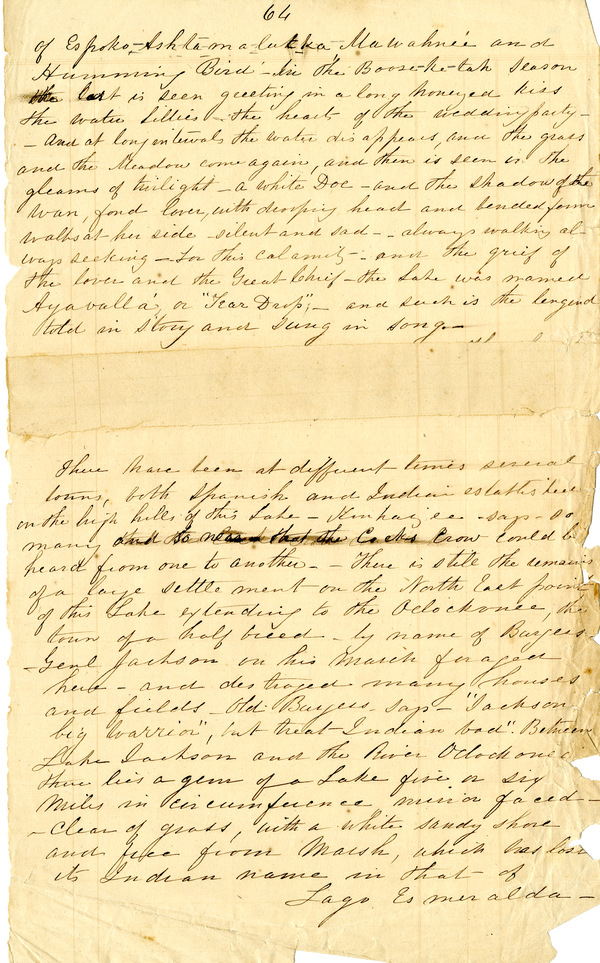 64
of Espoko-Ashta-ma-lutka-Mawahnée and
Humming Bird - In the Boose-ke-tah Season
the last is seen greeting in a long honeyed kiss
the water Lillies - the hearts of the wedding party -
- And at long intervals the water disappears, and the grass
and the Meadow come again, and then is seen in the
gleams of twilight - a white Doe - and the shadow of the
wan, fond lover, with drooping head and bended form
walks at her side - silent and sad - - always walking al-
ways seeking - For this calamity - and the grief of
the lover and the Great Chief - the Lake was named
Ayavalla, or "Tear Drop", - and such is the lengend
told in story and sung in song. -
There have been at different times several
towns, both Spanish and Indian established
on the high hills of this Lake - says so
many and so near that the Cocks Crow could be
heard from one to another - - There is still the remains
of a large settlement on the North East point
of this Lake extending to the Oclockonee, the
town of a half breed - by name of Burgess -
- Genl Jackson on his March foraged
here - and destroyed many houses
and fields - Old Burgess says - "Jackson
big Warrior", but treat Indian bad". Between
Lake Jackson and the River Oclockonee
there lies a gem of a Lake five or six
Miles in circumference mirror faced -
- Clear of grass, with a white sandy shore
and free from Marsh, which has lost
its Indian name in that of
Lago Esmeralda -